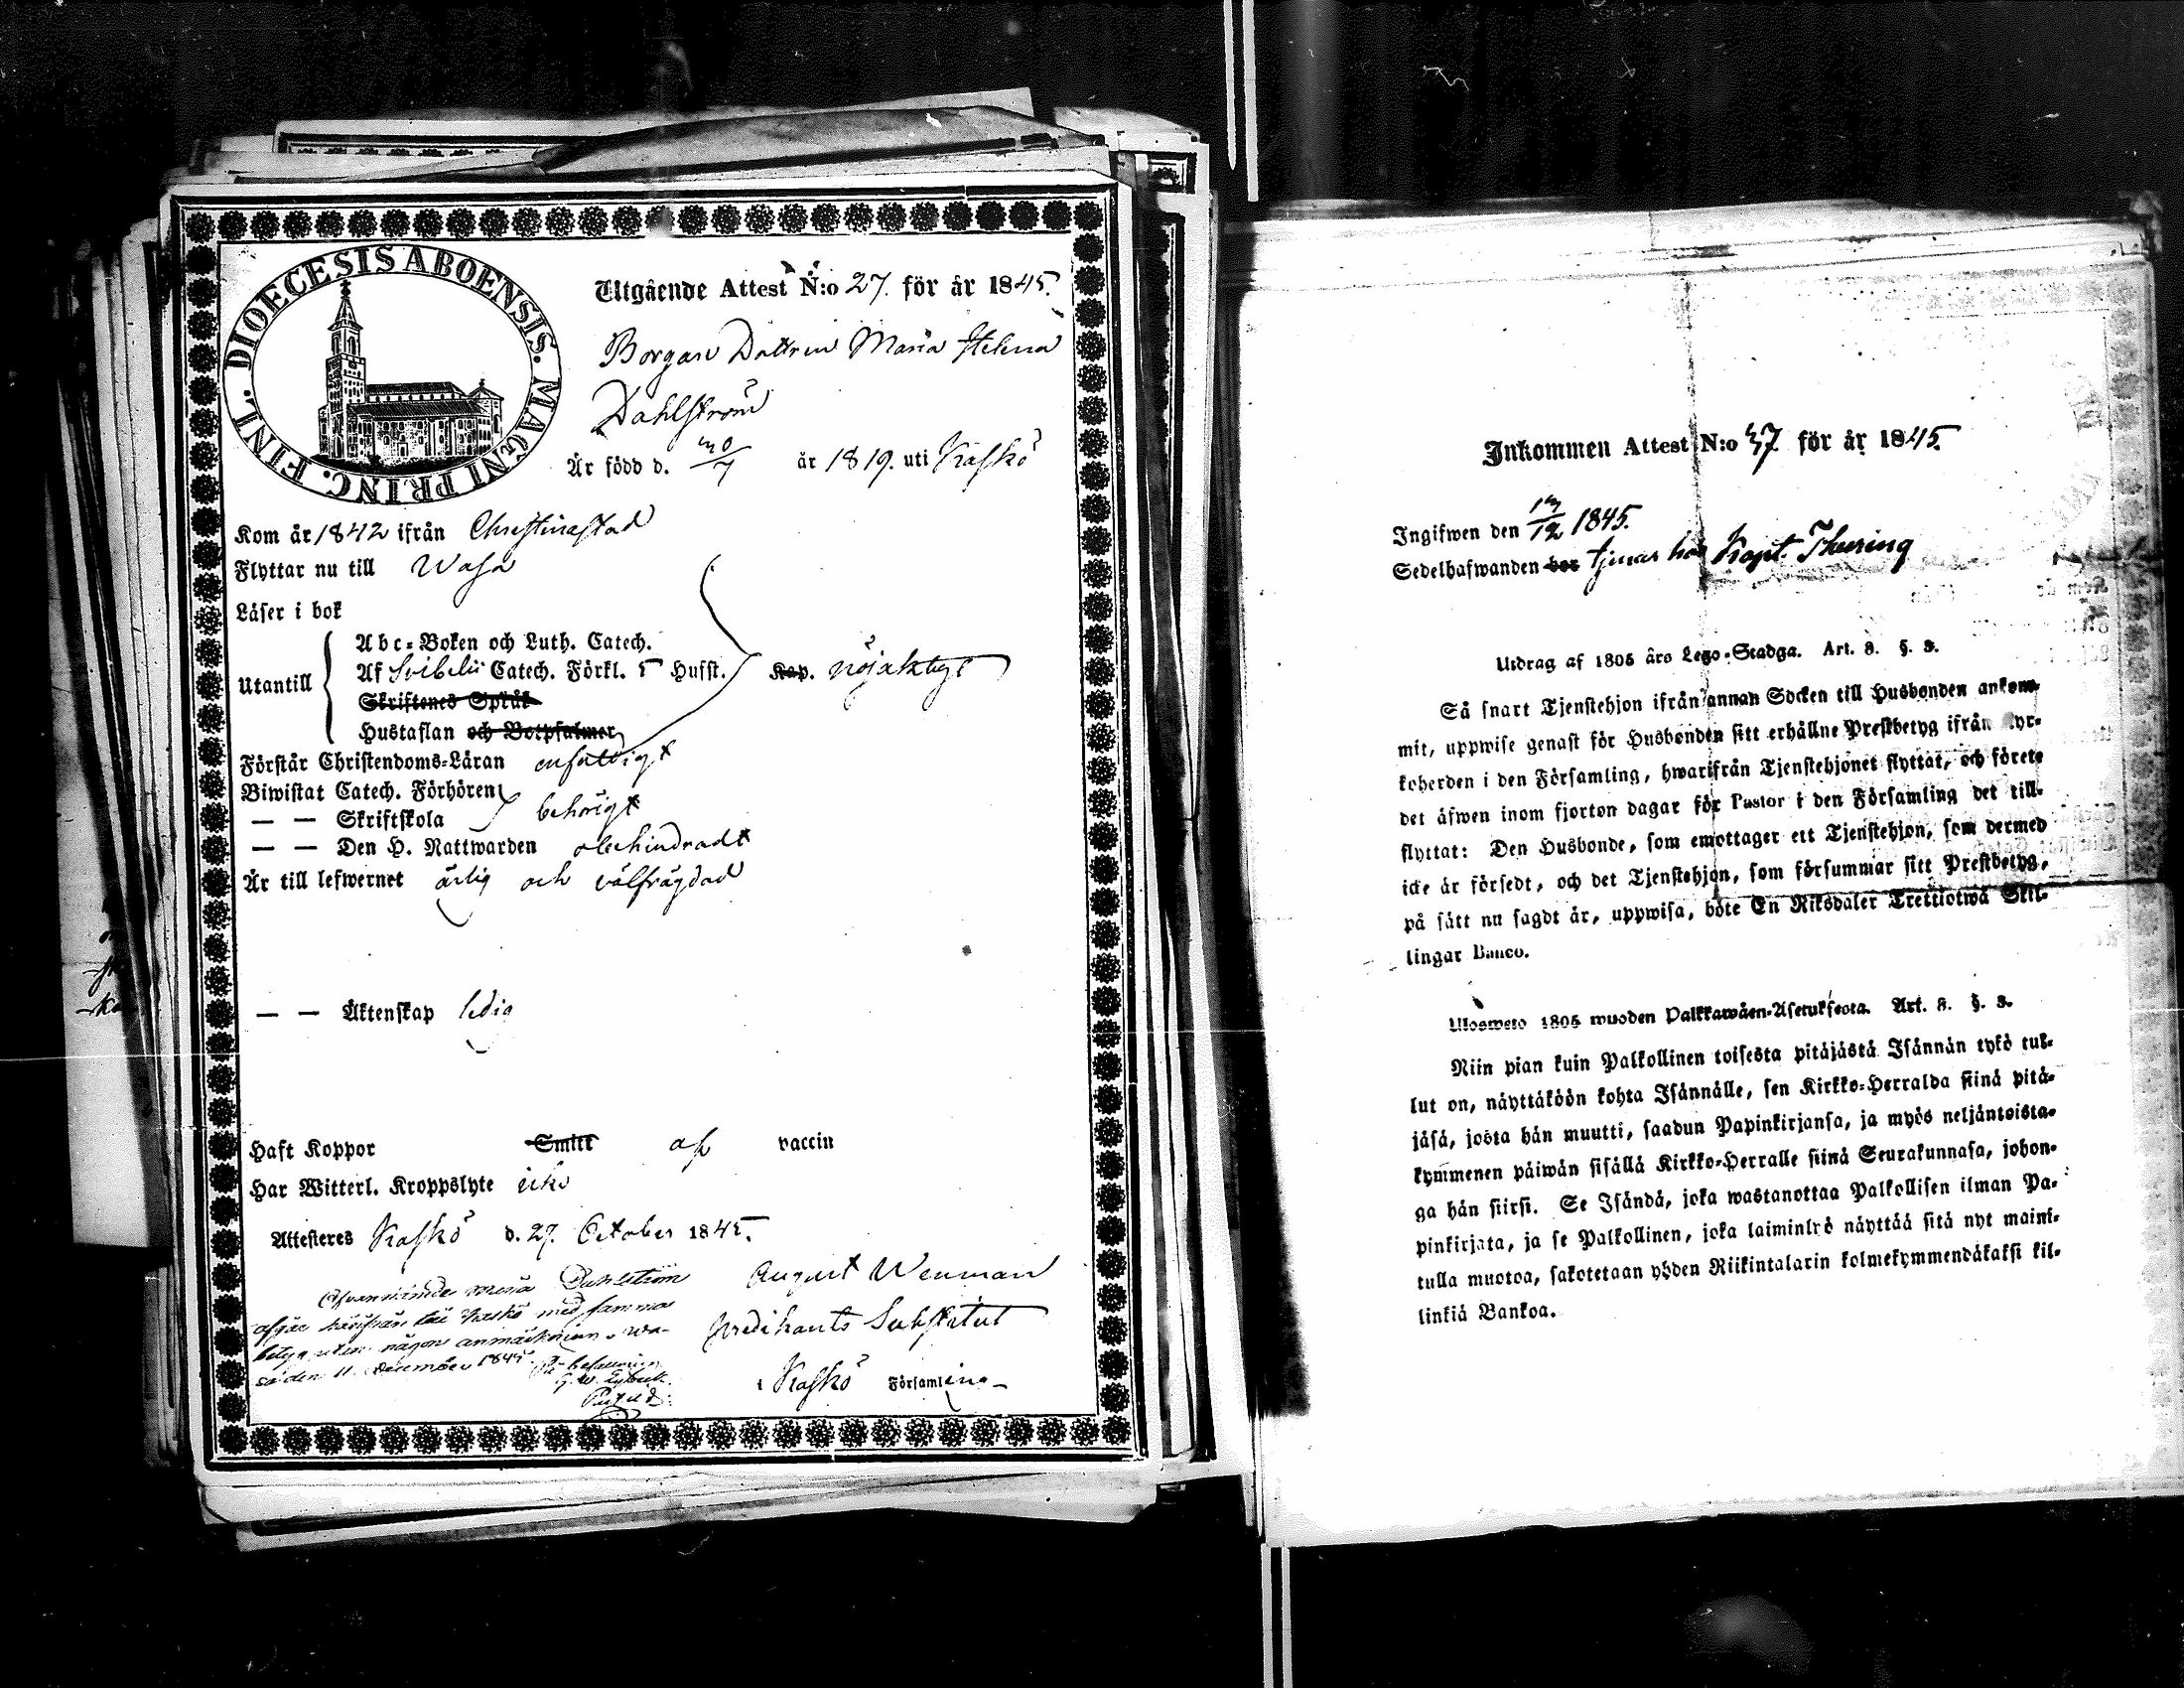 DIOECESIS ABOENSIS. MAGNI PRINC. FINL.
Utgående Attest N:o 27. för år 1845.
Borgare Dottren Maria Helena
Dahlström
Är född d. 30/7 år 1819. uti Kaskö
Kom år 1842 ifrån Christinestad
Flyttar nu till Wasa
Läser i bok
Utantill
Abc-Boken och Luth. Catech.
Af Svibelii Catech. Förkl. Husst.
Kap. nöjaktigt
Skriftenes Språk
Hustaflan och Botpsalmer
Förstår Christendoms-Läran enfaldigt
Biwistat Catech. Förhören
— — Skriftskola behörigt
— — Den H. Nattwarden obehindradt
Är till lefwernet ärlig och välfrägdad
— — Äktenskap ledig
Haft Koppor Smitt af vaccin
Har Witterl. Kroppslyte icke
Attesteres Kaskö d. 27. October 1845.
August Wenman
Predikants Substitut
i Kaskö Församling
Ofvannämnde Maria Dahlström
afgår härifrån till Kaskö med samma
betyg utan någon anmärkning. Wa-
sa den 11 December 1845.
Inkommen Attest N:o 37 för år 1845.
Ingifwen den 13/12 1845.
Sedelhafwanden bor tjenar hos Kapt. Thuring
Utdrag af 1805 års Lego-Stadga. Art. 8. §. 3.
Så snart Tjenstehjon ifrån annan Socken till Husbonden ankom-
mit, uppwise genast för Husbonden sitt erhållne Prestbetyg ifrån Kyr-
koherden i den Församling, hwarifrån Tjenstehjonet flyttat, och förete
det äfwen inom fjorton dagar för Pastor i den Församling det till-
flyttat: Den Husbonde, som emottager ett Tjenstehjon, som dermed
icke är försedt, och det Tjenstehjon, som försummar sitt Prestbetyg,
på sätt nu sagdt är, uppwisa, böte En Riksdaler Trettiotwå Skil-
lingar Banco.
Ulosweto 1805 wuoden Palkkawäen-Asetuksesta. Art. 8. §. 3.
Niin pian kuin Palkollinen toisesta pitäjästä Isännän tykö tul-
lut on, näyttäköön kohta Isännälle, sen Kirkko-Herralda siinä pitä-
jäsä, josta hän muutti, saadun Papinkirjansa, ja myös neljäntoista-
kymmenen päiwän sisällä Kirkko-Herralle siinä Seurakunnasa, johon-
ga hän siirsi. Se Isändä, joka wastanottaa Palkollisen ilman Pa-
pinkirjata, ja se Palkollinen, joka laiminlyö näyttää sitä nyt maini-
tulla muotoa, sakotetaan yhden Riikintalarin kolmekymmendäkaksi kil-
linkiä Bankoa.